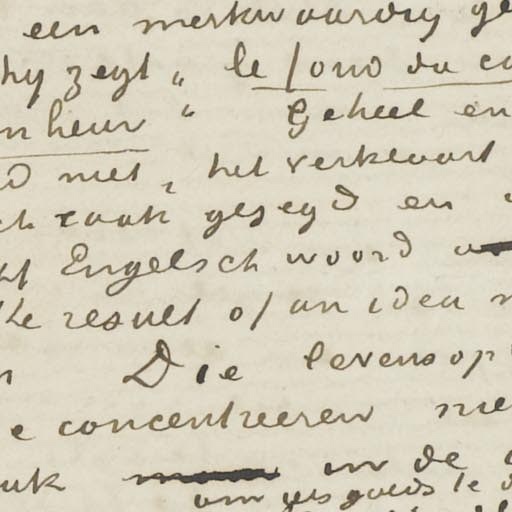 een merkwaardig ge
hy zegt „ le fond du co
nheur " Geheel en
d niet, het verkwart
ch raak gezegd en
Engelsch woord
the result of an idea
Die levensop
e concentreeren me
uk in de
om iets goeds te d